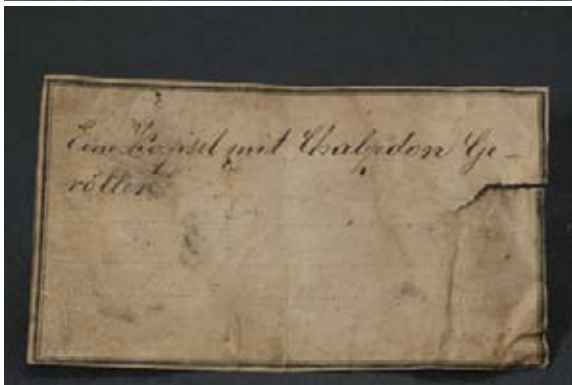 Eine Kapsel mit Chalzidon Ge-
röllen